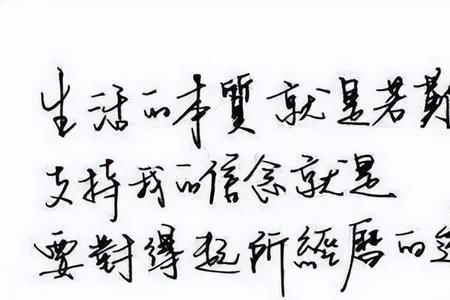 生活的本質就是苦難
支持我的信念就是
要對得起所經曆的